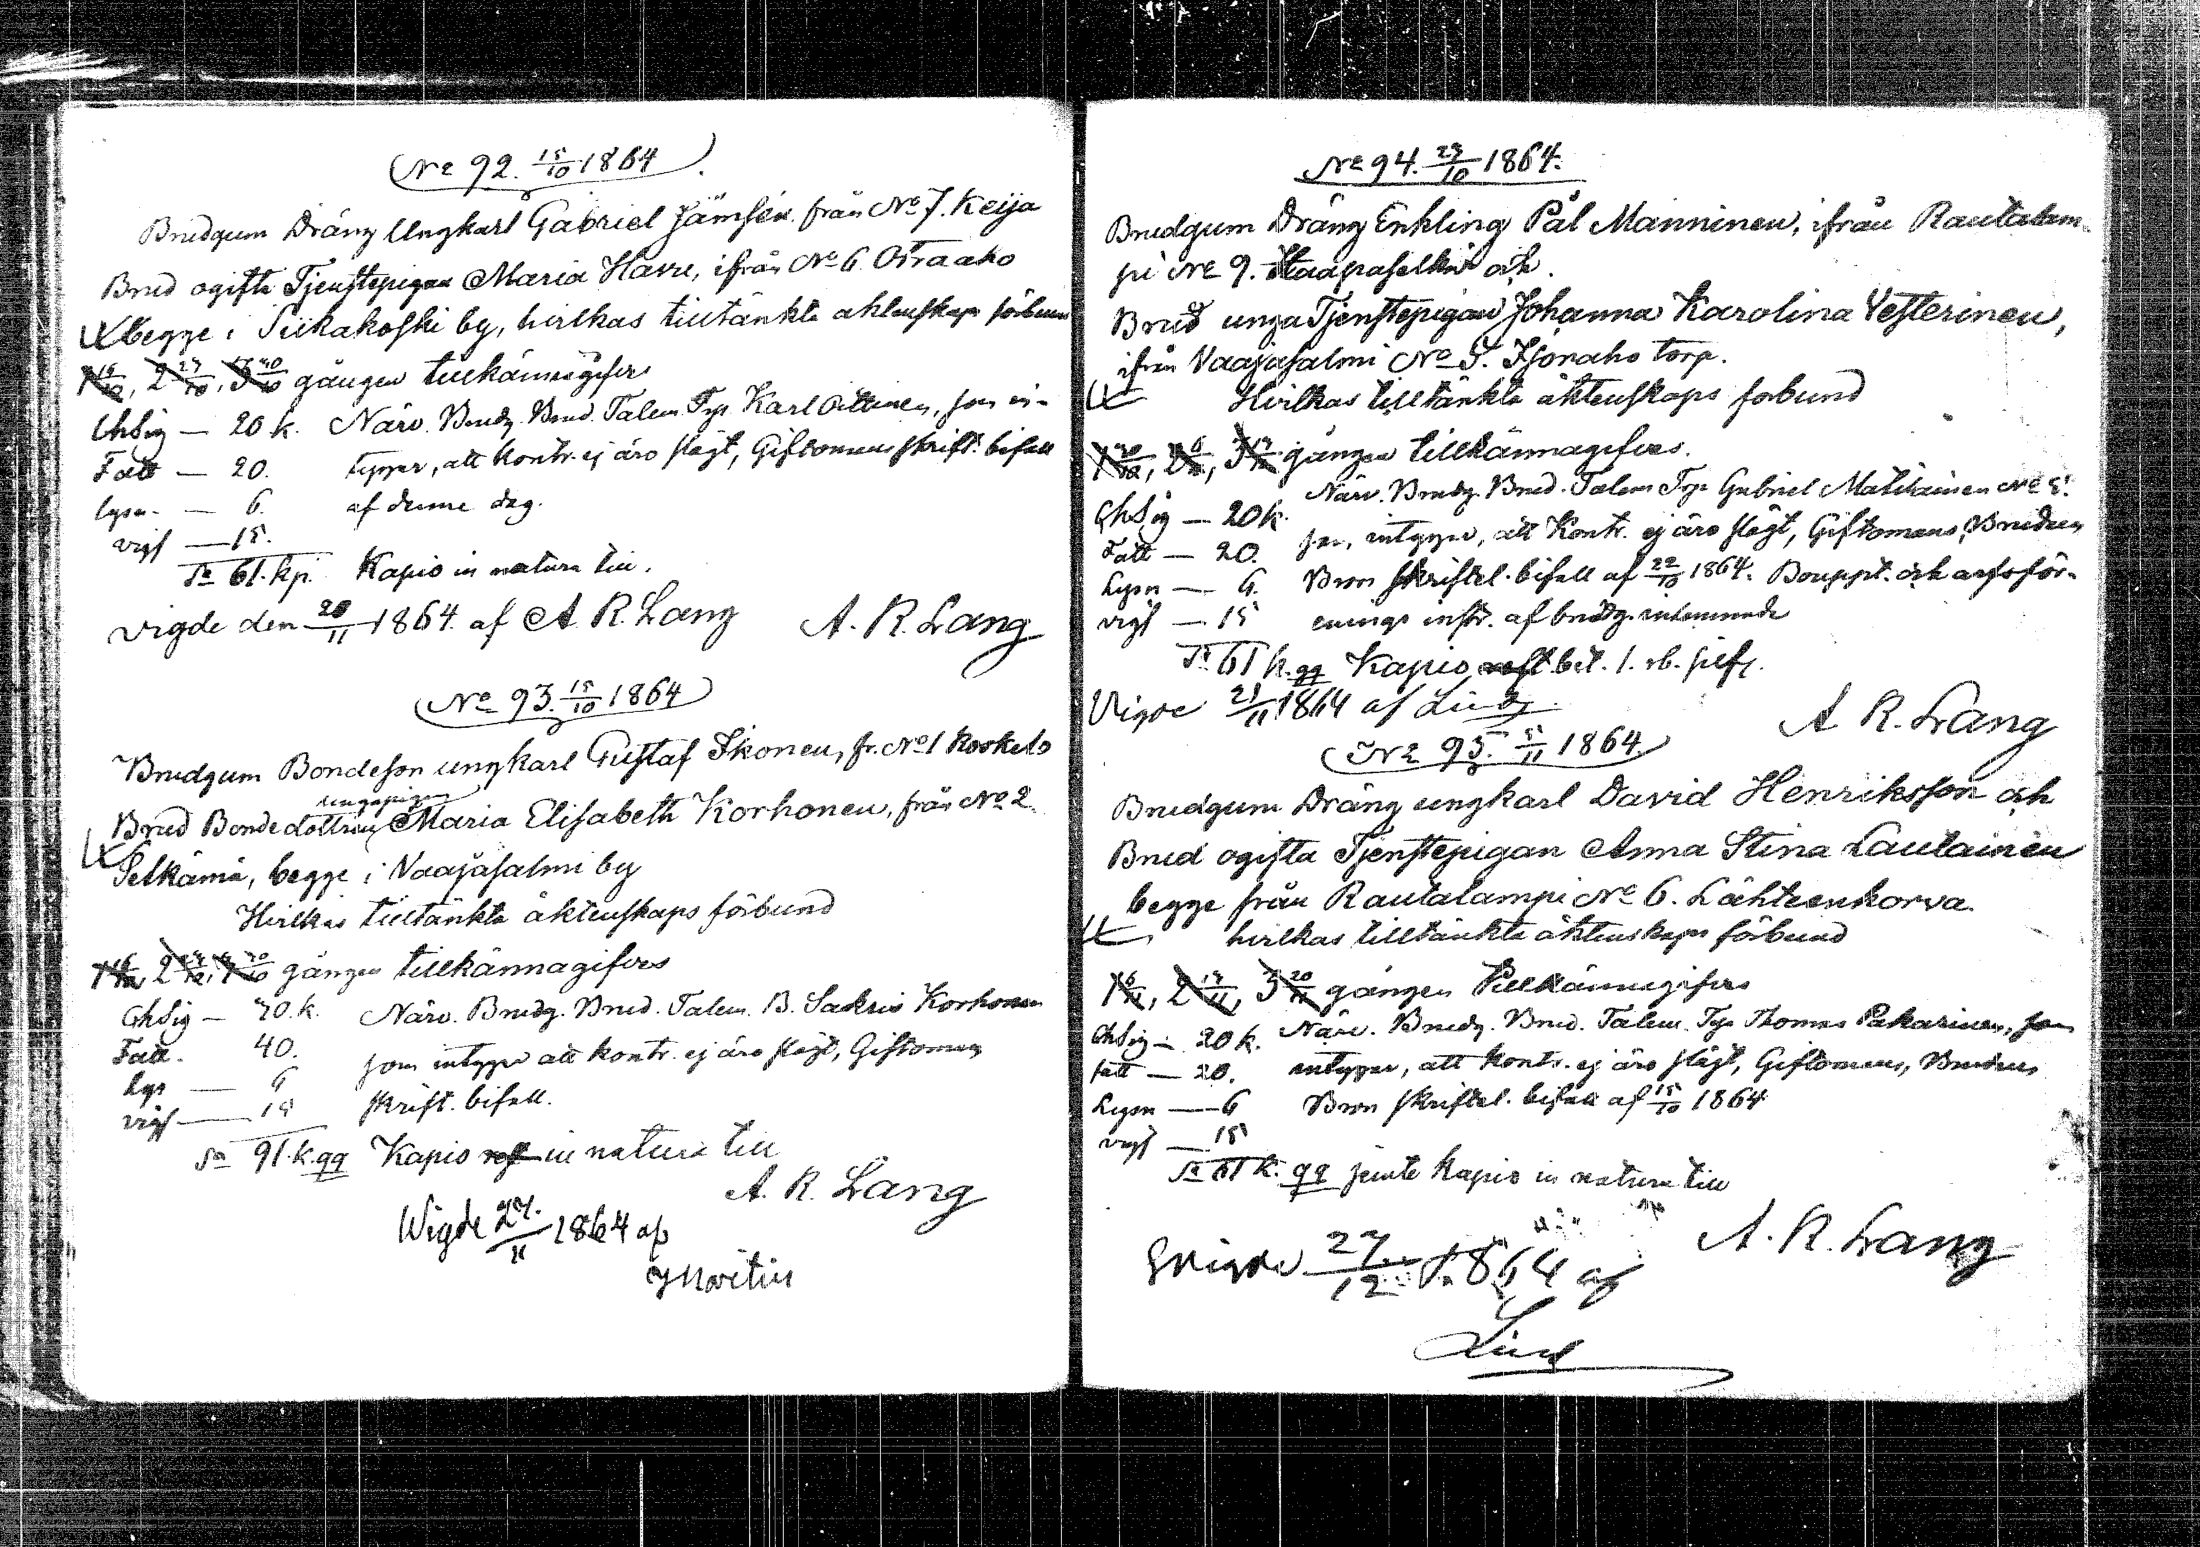 No 92. 15/10 1864
Brudgum Dräng Ungkarl Gabriel Jämsén från No 7. Keija
Brud ogifta Tjenstepigan Maria Havu, ifrån No 6
begge i Siikakoski by, hvilkas tilltänkta äktenskaps förbund
gången tillkännagifves
ChSig — 20 k. Närv. Brudg. Brud. Talem. Tp Karl Oittinen, som in-
Fatt — 20. tygar, att kontr. ej äro slägt, Giftomans skrift. bifall
lysn. — 6. af denne dag.
vigs — 15.
Sa 61. kp. Kapio in natura till.
vigde den 1864 af A. R. Lang
A. R. Lang
No 93. 15/10 1864
Brudgum Bondeson ungkarl Gustaf Ikonen, fr. No 1
ungpigan
Brud Bonde dottren Maria Elisabeth Korhonen, från No 2
begge i Vaajasalmi by
Hvilkas tilltänkta äktenskaps förbund
gången tillkännagifves
ChSig — k. Närv. Brudg. Brud. Talem. B. Sakris Korhonen
Fatt. 40. som intygar att kontr. ej äro slägt, Giftomans
Lys — 6 skrift. bifall.
vigs — 15
Sa 91. k. qq Kapio in natura till
A. R. Lang
Wigde 27/11 1864 af
No 94. 1864.
Brudgum Dräng Enkling Pål Manninen, ifrån Rautalam-
pi No 9. Haapaselkä och
Brud unga Tjenstepigan Johanna Karolina Vesterinen,
ifrån Vaajasalmi No torp.
Hvilkas tilltänkta äktenskaps forbund
gången tillkännagifves.
Närv. Brudg. Brud. Talem Tp Gabriel Matikainen No
ChSig — 20 k. som, intygar, att Kontr. ej äro slägt, Giftomans, Brudens
Fatt — 20. Bror skriftel. bifall af 22/10 1864. Bouppt. och arfsför-
Lysn — 6.
vigs — 15 af brudg.
Sa 61 k. qq Kapio bet. 1. rb. silfv.
Vigde 1864 af Lind
A. R. Lang
No 95. 5/11 1864.
Brudgum Dräng ungkarl David Henriksson och
Brud ogifta Tjenstepigan Anna Stina Lautainen
begge från Rautalampi No 6. Lähteenkorva.
hvilkas tilltänkta äktenskaps förbund
gången Tillkännagifves
ChSig — 20 k. Närv. Brudg. Brud. Talem. Tp Thomas Pakarinen, som
fatt — 20. intygar, att kontr. ej äro slägt, Giftomans, Brudens
Lysn — 6 Bron skriftel. bifall af 15/10 1864
vigs — 15
Sa 61 k. qq jemte Kapio in natura till
A. R. Lang
27/12 1864 af
Lind